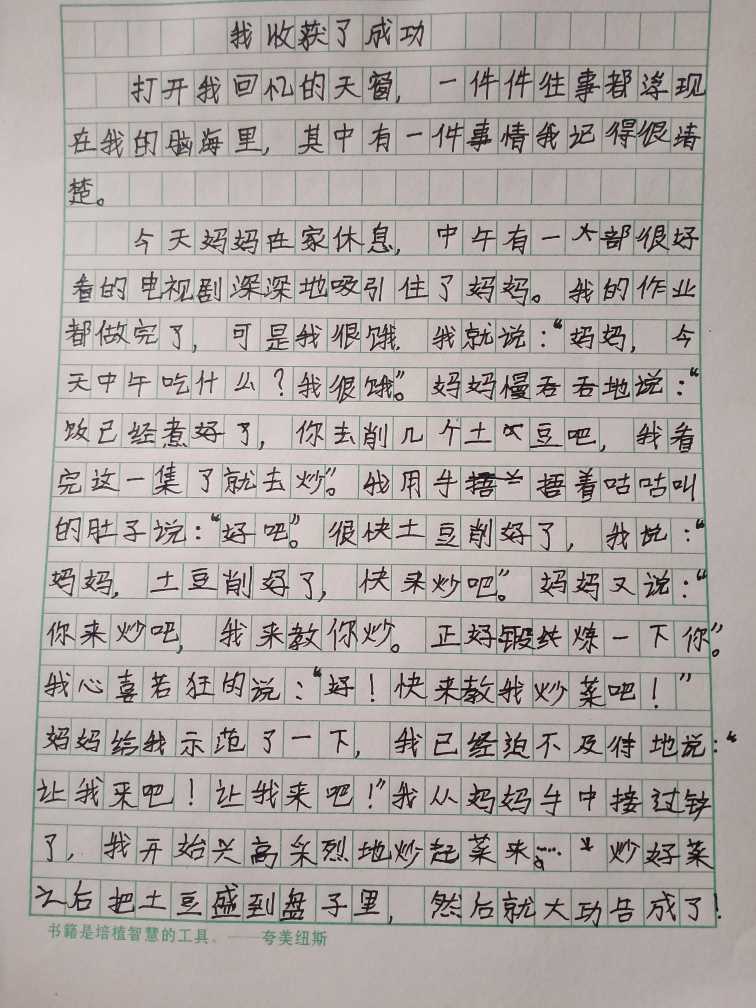 我收获了成功
打开我回忆的天窗，一件件往事都浮现
在我的脑海里，其中有一件事情我记得很清
楚。
今天妈妈在家休息，中午有一部很好
看的电视剧深深地吸引住了妈妈。我的作业
都做完了，可是我很饿．我就说：“妈妈，今
天中午吃什么？我很饿”。妈妈慢吞吞地说：“
饭已经煮好了，你去削几个土豆吧，我看
完这一集了就去炒”。我用手捂着咕咕叫
的肚子说：“好吧”。很快土豆削好了，我说：“
妈妈，土豆削好了，快来炒吧”。妈妈又说：“
你来炒吧，我来教你炒。正好锻炼一下你”。
我心喜若狂的说：“好！快来教我炒菜吧！”
妈妈给我示范了一下，我已经迫不及待地说：“
让我来吧！让我来吧！”我从妈妈手中接过铲
了，我开始兴高采烈地炒起菜来……炒好菜
之后把土豆盛到盘子里，然后就大功告成了！
书籍是培植智慧的工具。——夸美纽斯